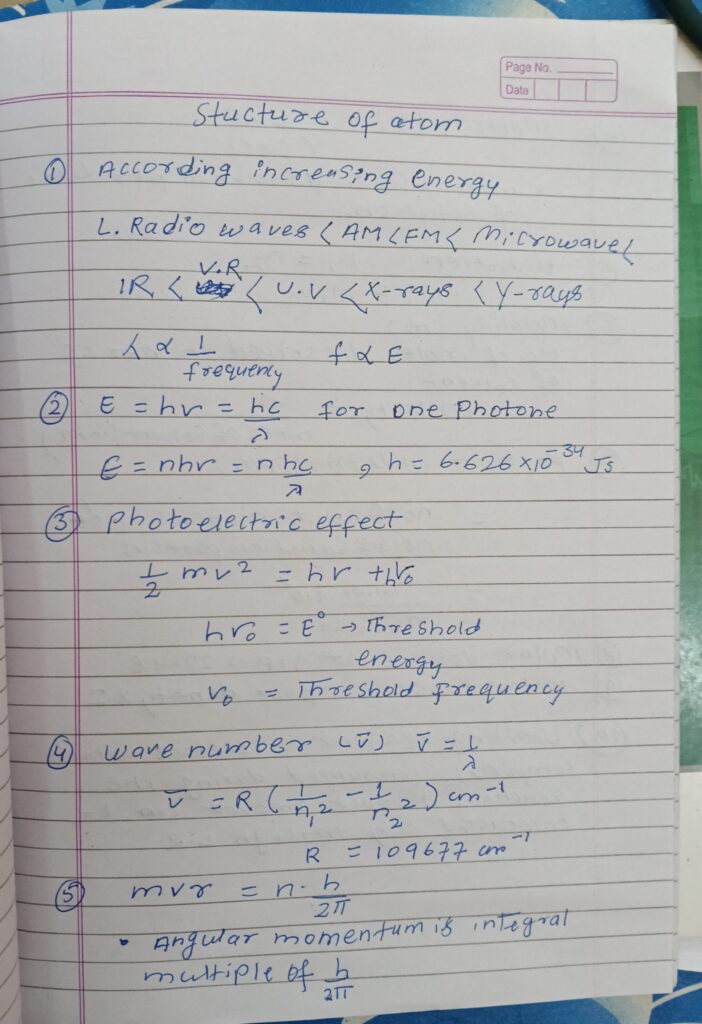 Page No.
Date
Stucture of atom
① According increasing energy
L. Radio waves < AM < FM < Microwave <
IR < V.R < U.V < X-rays < γ-rays
λ ∝ 1/frequency f ∝ E
② E = hν = hc/λ for one Photone
E = nhν = n hc/λ , h = 6.626 × 10⁻³⁴ Js
③ Photoelectric effect
1/2 mv² = hν + hν₀
hν₀ = E° → Threshold
energy
ν₀ = Threshold frequency
④ wave number (ν̅) ν̅ = 1/λ
ν̅ = R (1/n₁² - 1/n₂²) cm⁻¹
R = 109677 cm⁻¹
⑤ mvr = n · h/2π
• Angular momentum is integral
multiple of h/2π